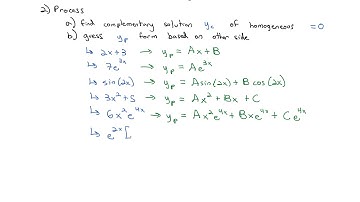 2) Process
a) find complementary solution y꜀ of homogeneous =0
b) guess yₚ form based on other side
↳ 2x+3 → yₚ = Ax + B
↳ 7e³ˣ → yₚ = Ae³ˣ
↳ sin(2x) → yₚ = Asin(2x) + B cos(2x)
↳ 3x²+5 → yₚ = Ax² + Bx + C
↳ 6x²e⁴ˣ → yₚ = Ax²e⁴ˣ + Bxe⁴ˣ + Ce⁴ˣ
↳ e²ˣ[